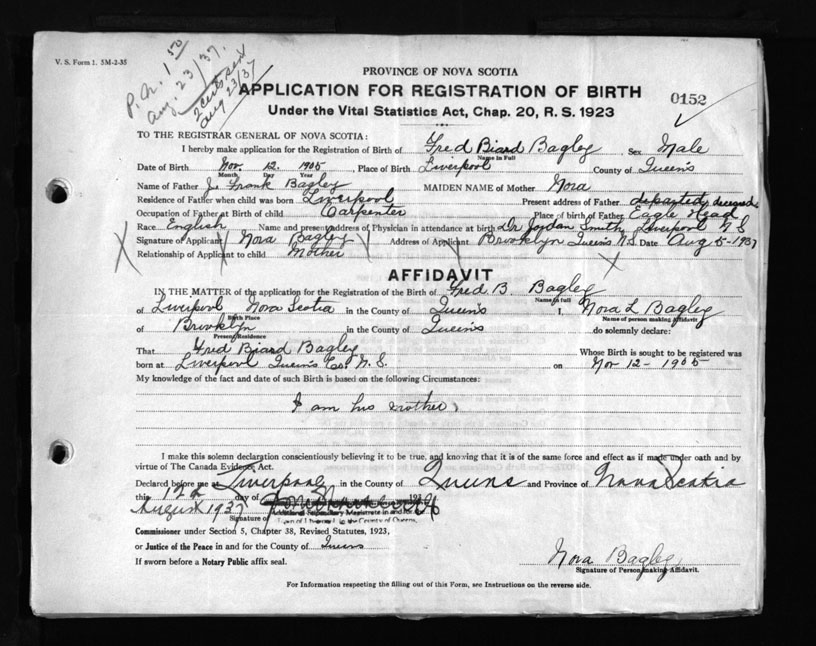 V. S. Form 1. 5M-2-35
P. N. 1 50
Aug. 23/37.
Aug 23/37
PROVINCE OF NOVA SCOTIA
APPLICATION FOR REGISTRATION OF BIRTH
0152
Under the Vital Statistics Act, Chap. 20, R. S. 1923
TO THE REGISTRAR GENERAL OF NOVA SCOTIA:
I hereby make application for the Registration of Birth of Fred Biard Bagley Sex Male
Name in Full
Date of Birth Nov. 12. 1905, Place of Birth Liverpool County of Queen's
Month Day Year
Name of Father J. Frank Bagley MAIDEN NAME of Mother Nora
Residence of Father when child was born Liverpool Present address of Father departed, deceased
Occupation of Father at Birth of child Carpenter Place of birth of Father Eagle Head
Race English Name and present address of Physician in attendance at birth Dr Jordan Smith, Liverpool N S
Signature of Applicant Nora Bagley Address of Applicant Brooklyn Queen's N.S. Date Aug 5-1937
Relationship of Applicant to child Mother
AFFIDAVIT
IN THE MATTER of the application for the Registration of the Birth of Fred B. Bagley
Name in full
of Liverpool Nova Scotia in the County of Queen's I, Nora L Bagley
Birth Place Name of person making Affidavit
of Brooklyn in the County of Queen's do solemnly declare:
Present Residence
That Fred Biard Bagley Whose Birth is sought to be registered was
born at Liverpool Queen's Co. N. S. on Nov 12 - 1905
My knowledge of the fact and date of such Birth is based on the following Circumstances:
I am his mother,
I make this solemn declaration conscientiously believing it to be true, and knowing that it is of the same force and effect as if made under oath and by
virtue of The Canada Evidence Act.
Declared before me at Liverpool in the County of Queens and Province of Nova Scotia
this 12th day of 193
August 1937
Signature of
Town of Liverpool in the County of Queens,
Commissioner under Section 5, Chapter 38, Revised Statutes, 1923,
or Justice of the Peace in and for the County of Queens
If sworn before a Notary Public affix seal.
Nora Bagley
Signature of Person making Affidavit.
For Information respecting the filling out of this Form, see Instructions on the reverse side.